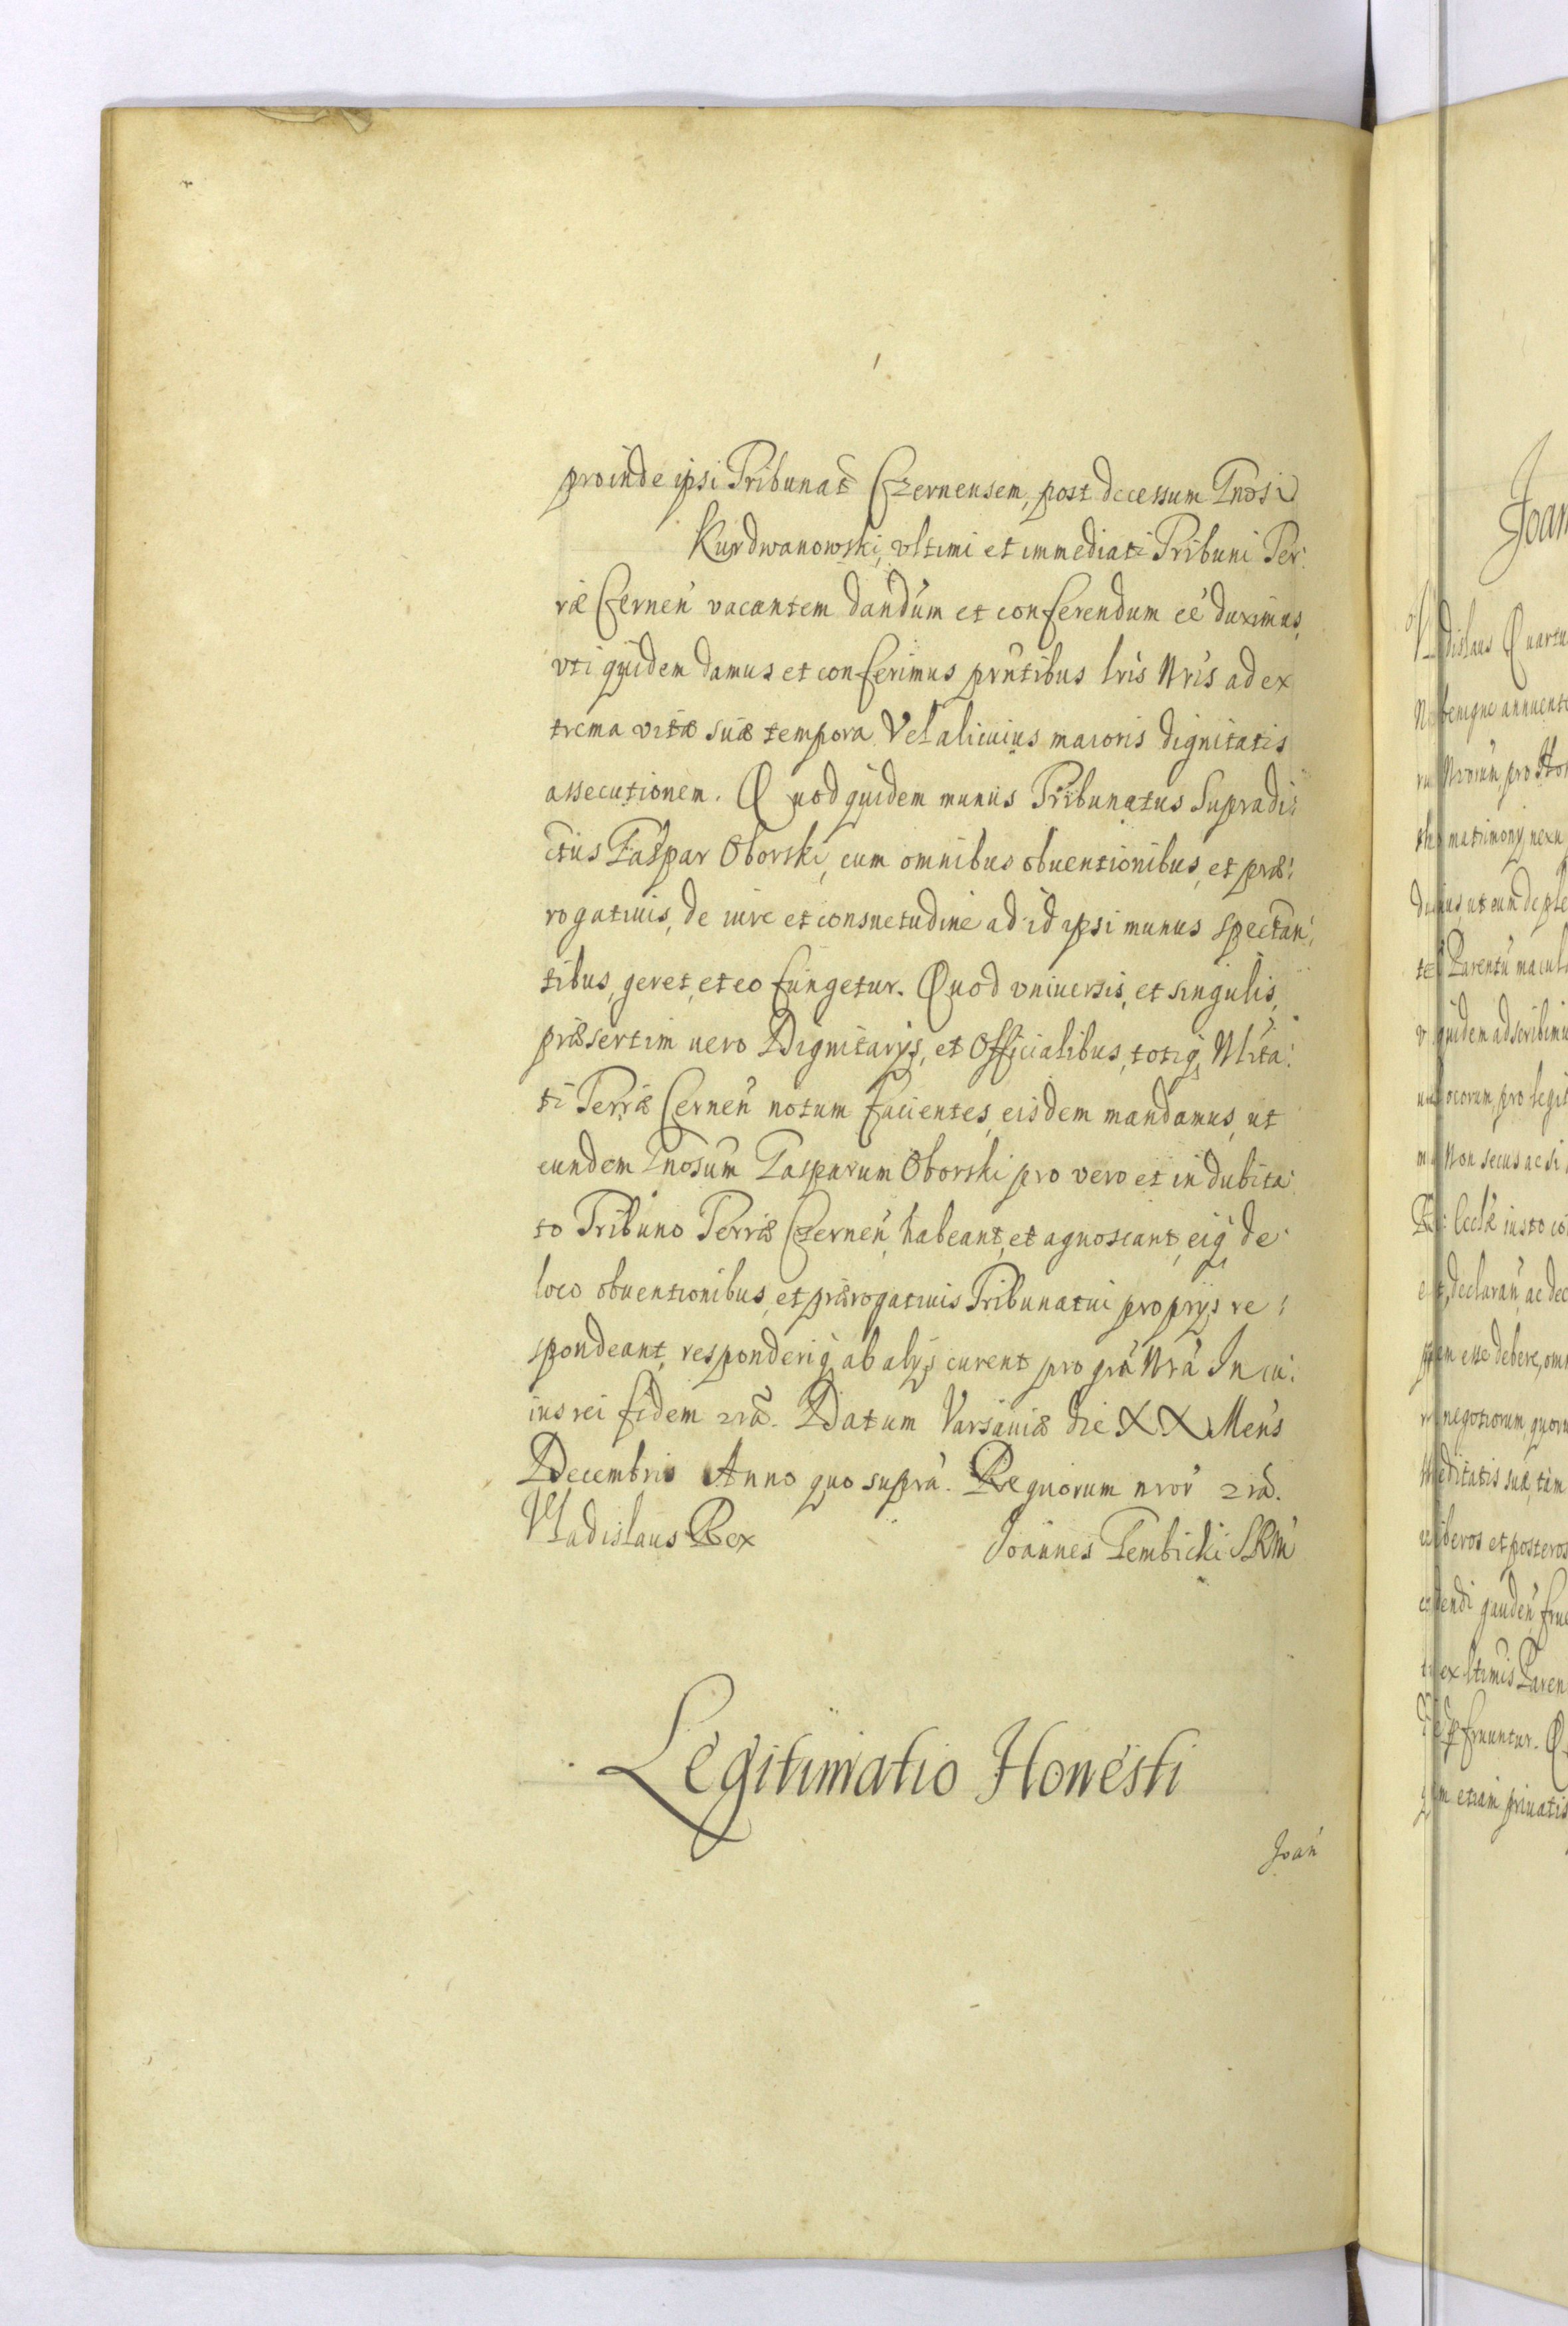 proinde ipsi Tribunat̃ Czernensem, post decessum Gnosi
Kurdwanowski, vltimi et immediati Tribuni Ter:
ræ Czernen̄ vacantem dandum et conferendum eē duximus,
vti quidem damus et conferimus prntibus lris Nris ad ex
trema vitæ suæ tempora Vel alicuius maioris dignitatis
assecutionem. Quod quidem munus Tribunatus Supradi:
ctus Gaspar Oborski, cum omnibus obuentionibus, et præ:
rogatiuis, de iure et consuetudine ad id ipsi munus spectan:
tibus, geret, et eo fungetur. Quod vniuersis, et singulis,
præsertim uero Dignitarijs, et Officialibus, totiq, Nlita:
ti Terræ Cernen̄ notum facientes, eisdem mandamus, ut
eundem Gnosum Gasparum Oborski pro vero et indubita:
to Tribuno Terræ Czernen̄, habeant, et agnoscant, eiq, de
loco obuentionibus, et prærogatiuis Tribunatui proprijs re:
spondeant, responderiq, ab alijs curent pro grã Nrã In cu:
ius rei fidem &rã. Datum Varsauiæ die XX Mens
Decembris Anno quo suprà. Regnorum nror̄ &rã.
Vladislaus Rex Joannes Gembicki SRM
Legitimatio Honesti
Joan̄
Joan
Vladislaus Quartu
benigne annuente
matrimony nexu
ut eum de ple
Parentū macula
quidem adscribimu
pro legit
Non secus ac si
Ecclæ iusto co
declaran̄, ac dec
esse debere, omn
negotiorum, quoru
editatis suæ, tam
liberos et posteros
gauden̄, frue
ex ltimis Paren
fruuntur. Q
etiam priuatis